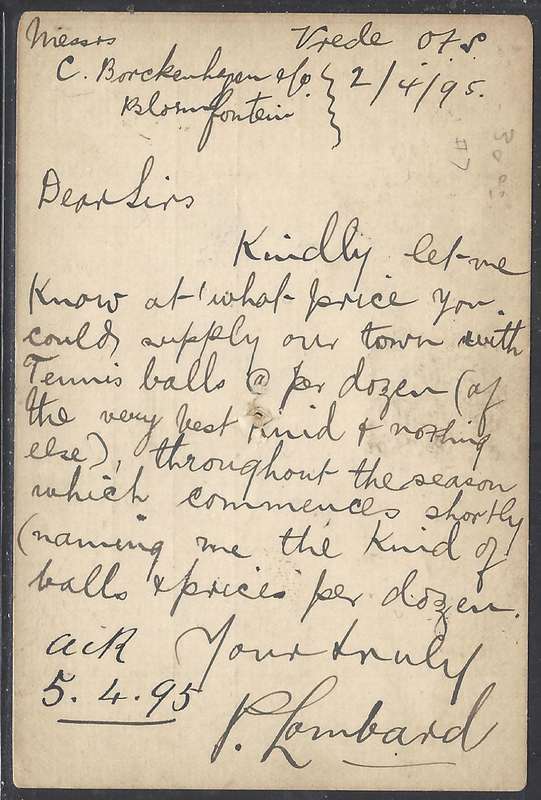 Messrs Vrede OFS
C. Borckenhagen & Co. 2/4/95.
Bloemfontein
Dear Sirs
Kindly let me
Know at what price you
could supply our town with
Tennis balls @ per dozen (of
the very best Kind & nothing
else), throughout the season
which commences shortly
(naming me the Kind of
balls & prices per dozen.
Yours truly
ack
5.4.95
P. Lombard